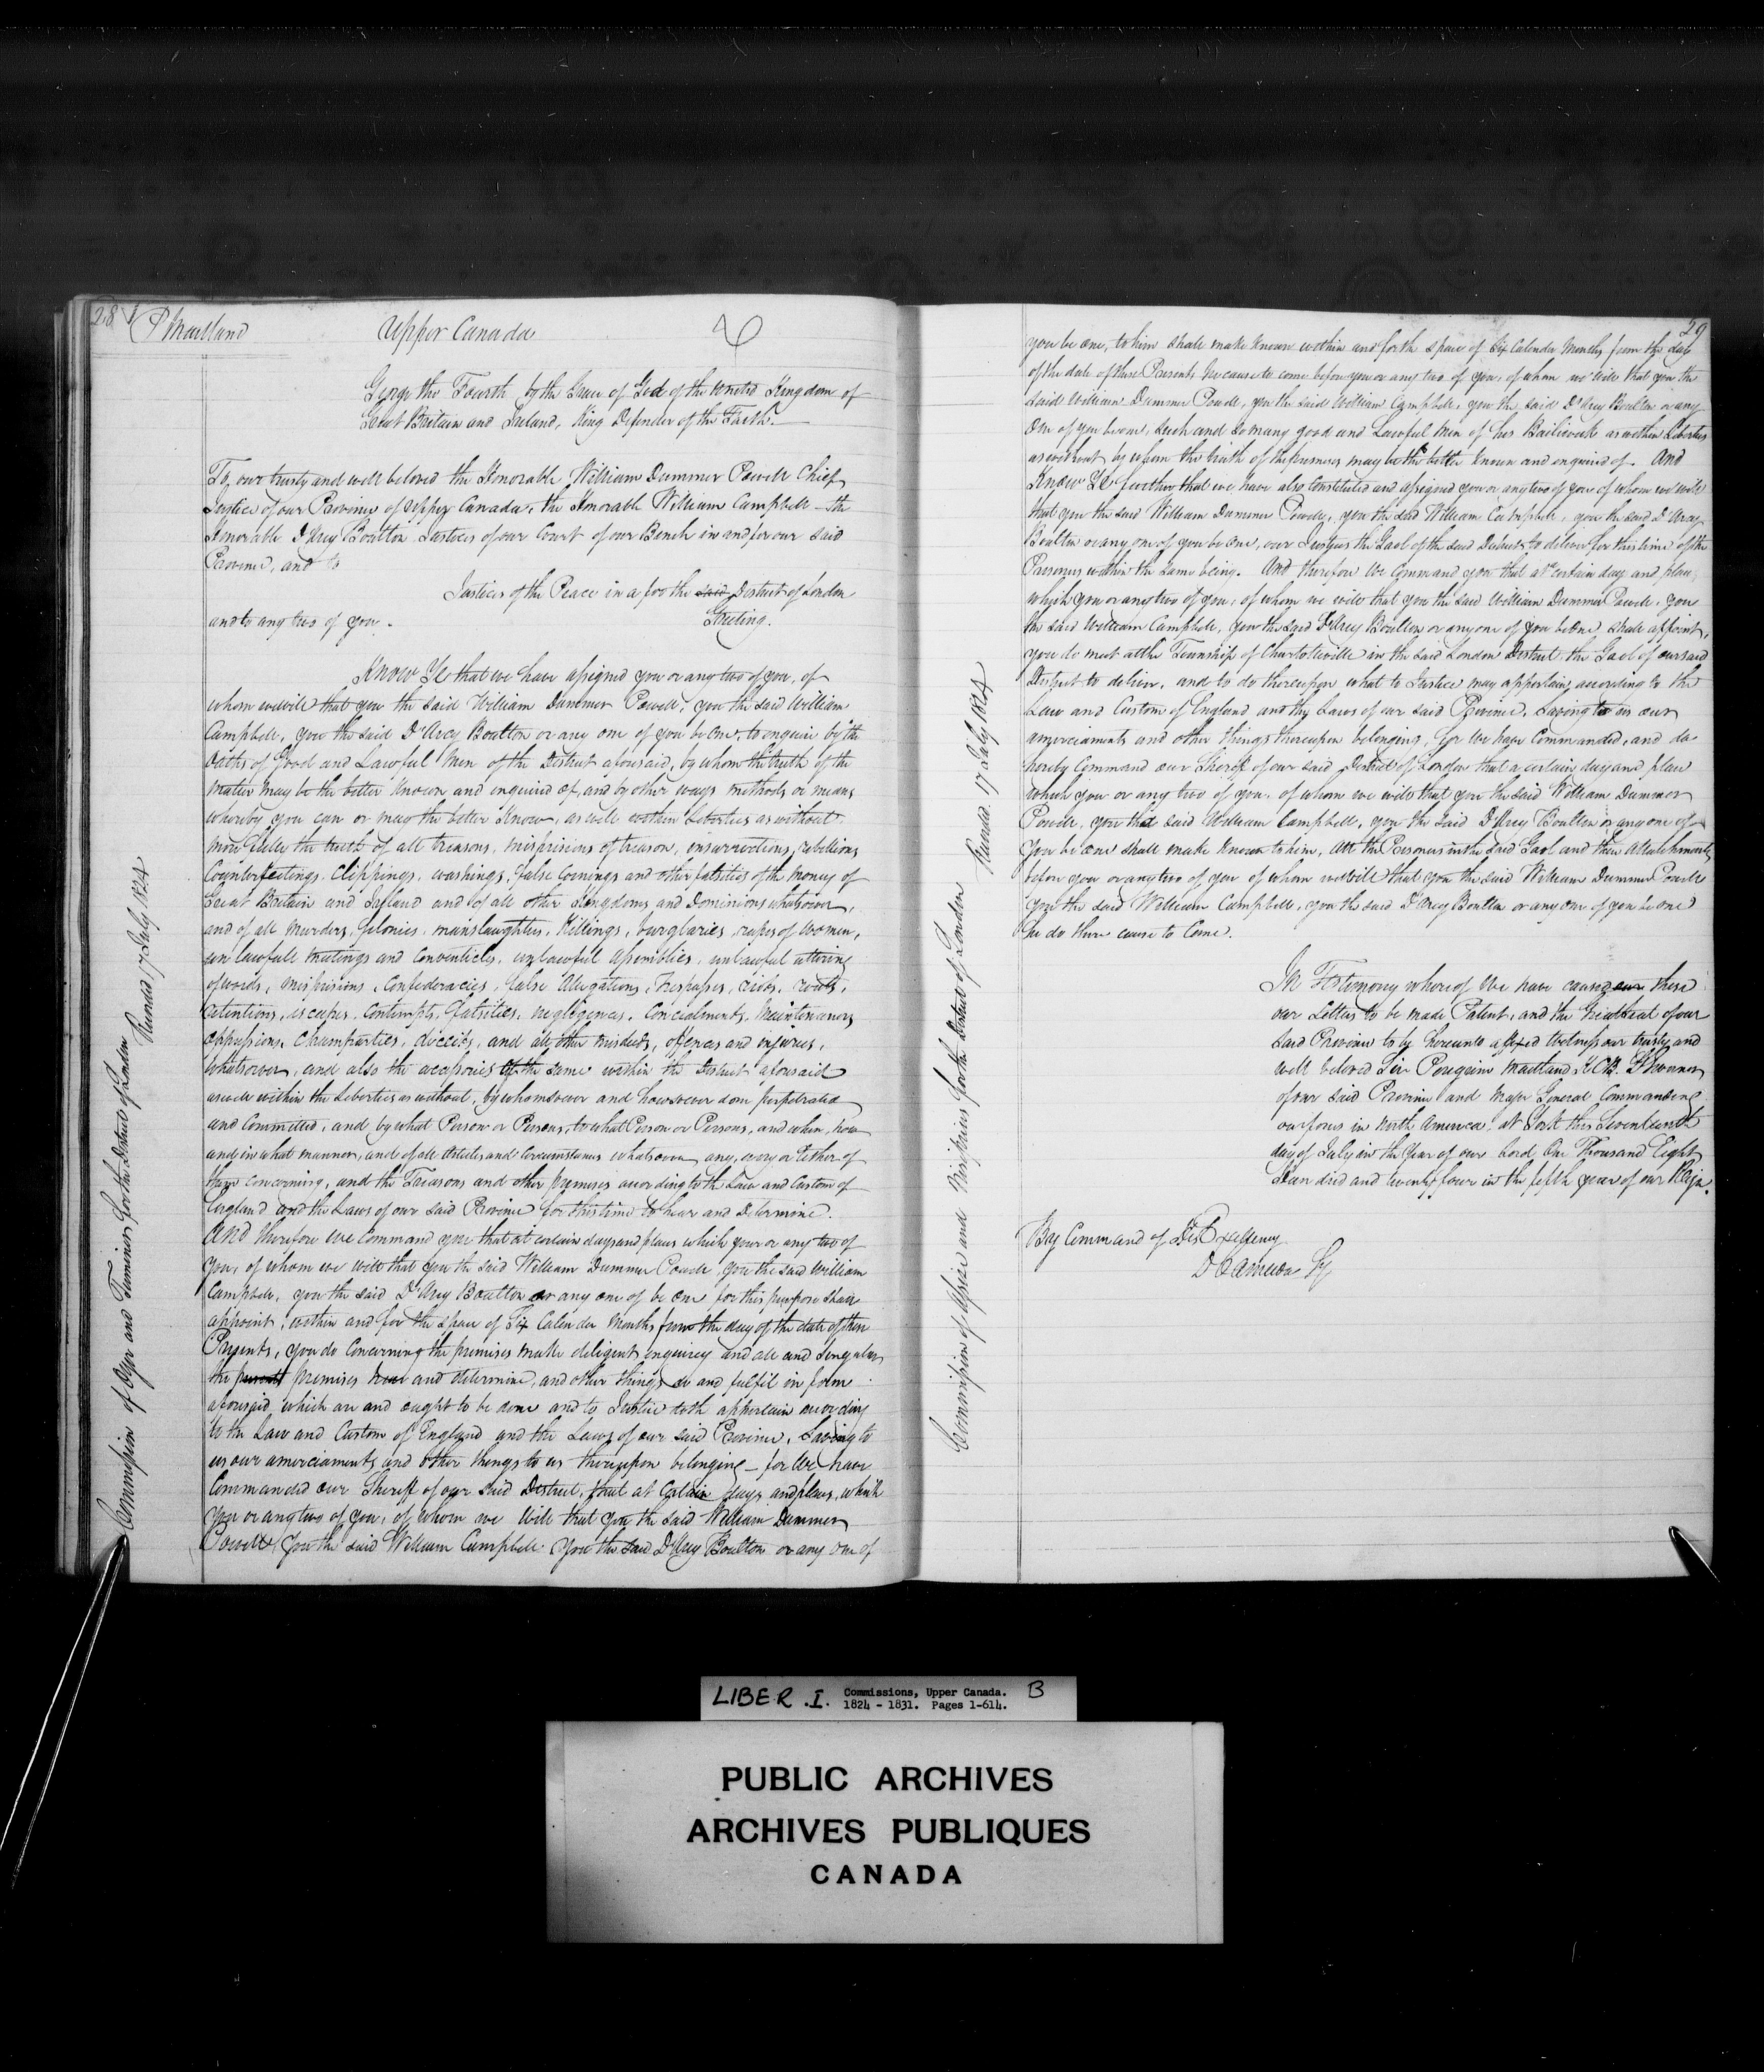 28
P Maitland
Upper Canada
George the Fourth by the Grace of God of the United Kingdom of
Great Britain and Ireland, King Defender of the Faith.
To, our trusty and well beloved the Honorable William Dummer Powell Chief
Justice of our Province of Upper Canada, the Honorable William Campbell – the
Honorable D'Arcy Boulton Justices of our Court of our Bench in and for our said
Province, and to
Justices of the Peace in a for the said District of London
and to any two of you.
Greeting.
Know Ye that we have assigned you or any two of you, of
whom we will that you the said William Dummer Powell, you the said William
Campbell, you the said D'Arcy Boulton or any one of you be One, to enquire by the
oaths of Good and Lawful Men of the District aforesaid, by whom the truth of the
matter may be the better Known and inquired of, and by other ways methods or means
whereby you can or may the better Know, as well within Liberties as without
more fully the truth of all treasons, misprisions of treason, insurrections, rebellions
Counterfeitings, Clippings, washings, false Coinings and other falsities of the money of
Great Britain and Ireland and of all other Kingdoms and Dominions whatsoever,
and of all Murders, felonies, manslaughters, Killings, burglaries, rapes of Women,
un lawfull meetings and Conventicles, unlawful assemblies, unlawful uttering
of words, misprisions, Confederacies, false Allegations, trespasses, riots, routs,
retentions, escapes, Contempts, falsities, negligences, Concealments, Maintenances
oppressions, Champarties, deceits, and all other misdeeds, offences and injuries,
whatsoever, and also the accessories of the same within the District aforesaid
as well within the Liberties as without, by whomsoever and howsoever done perpetrated
and Committed, and by what Person or Persons, to what Person or Persons, and when, how
and in what manner, and of all Articles and Circumstances whatsoever any, every or Either of
them concerning, and the Treasons and other premises according to the Law and Custom of
England and the Laws of our said Province for this time to hear and Determine.
And therefore we Command you that at certain days and places which you or any two of
you, of whom we will that you the said William Dummer Powell, you the said William
Campbell, you the said D'Arcy Boulton or any one of be One for this purpose shall
appoint, within and for the space of Six Calender Months from the day of the date of these
Presents, you do Concerning the premises make diligent enquirey and all and singular
the premises hear and determine, and other things do and fulfil in form
aforesaid which are and ought to be done and to Justice doth appertain according
to the Law and Custom of England and the Laws of our said Province, Saving to
us our amerciaments and other things to us thereupon belonging – for We have
Commanded our Sheriff of our said District, that at Certain days and places, which
you or any two of you, of whom we will that you the said William Dummer
Powell, you the said William Campbell you the said D'Arcy Boulton or any one of
Commission of Oyer and Terminer for the District of London
Recorded 17 July 1824
29
you be one, to him shall make known within and for the space of Six Calender Months from the day
of the date of these Presents he cause to come before you or any two of you, of whom we will that you the
said William Dummer Powell, you the said William Campbell, you the said D'Arcy Boulton or any
One of you be one, such and so many good and Lawful Men of his Bailiwick as within Liberties
as without by whom the truth of the premises may be the better known and enquired of. And
Know Ye further that we have also Constituted and assigned you or any two of you of whom we will
that you the said William Dummer Powell, you the said William Campbell, you the said D'Arcy
Boulton or any one of you be One, our Justices the Gaol of the said District to deliver for this time of the
Prisoners within the same being. And therefore We Command you that at certain day and place,
which you or any two of you, of whom we will that you the said William Dummer Powell, you
the said William Campbell, you the said D'Arcy Boulton or any one of you be One shall appoint,
you do meet at the Township of Charlotteville in the said London District the Gaol of our said
District to deliver, and to do thereupon what to Justice may appertain, according to the
Law and Custom of England and the Laws of our said Province. Saving to us our
amerciaments and other things thereupon belonging, for We have Commanded, and do
hereby Command our Sheriff of our said District of London that a certain day and place
which you or any two of you, of whom we will that you the said William Dummer
Powell, you the said William Campbell, you the said D'Arcy Boulton or any one of
you be one shall make known to him, All the Prisoners in the said Gaol and their Attachments
before you or any two of you of whom we will that you the said William Dummer Powell
you the said William Campbell, you the said D'Arcy Boulton or any one of you be one
he do there cause to Come.
In Testimony whereof We have caused these
our Letters to be made Patent, and the Great Seal of our
said Province to be hereunto affixed Witness our trusty and
well beloved Sir Peregrine Maitland KCB. Lt Governor
of our said Province and Major General Commanding
our forces in North America, at York this Seventeenth
day of July in the Year of our Lord One Thousand Eight
Hundred and twenty four in the fifth year of our Reign.
By Command of His Excellency
D Cameron Sy
Commission of Assize and Nisi prius for the District of London
Recorded 17 July 1824
LIBER .I. Commissions, Upper Canada. B
1824 - 1831. Pages 1-614.
PUBLIC ARCHIVES
ARCHIVES PUBLIQUES
CANADA